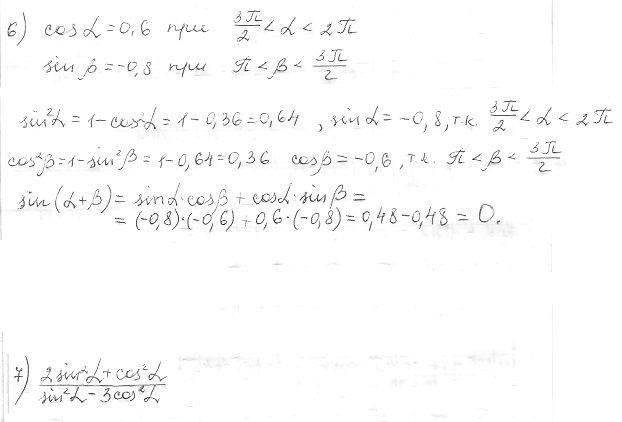 6) cos α = 0,6 при 3π/2 < α < 2π
sin β = -0,8 при π < β < 3π/2
sin²α = 1 - cos²α = 1 - 0,36 = 0,64 , sin α = -0,8, т.к. 3π/2 < α < 2π
cos²β = 1 - sin²β = 1 - 0,64 = 0,36 cos β = -0,6, т.к. π < β < 3π/2
sin(α+β) = sin α · cos β + cos α · sin β =
= (-0,8)·(-0,6) + 0,6·(-0,8) = 0,48 - 0,48 = 0.
7) (2 sin²α + cos²α)/(sin²α - 3cos²α)